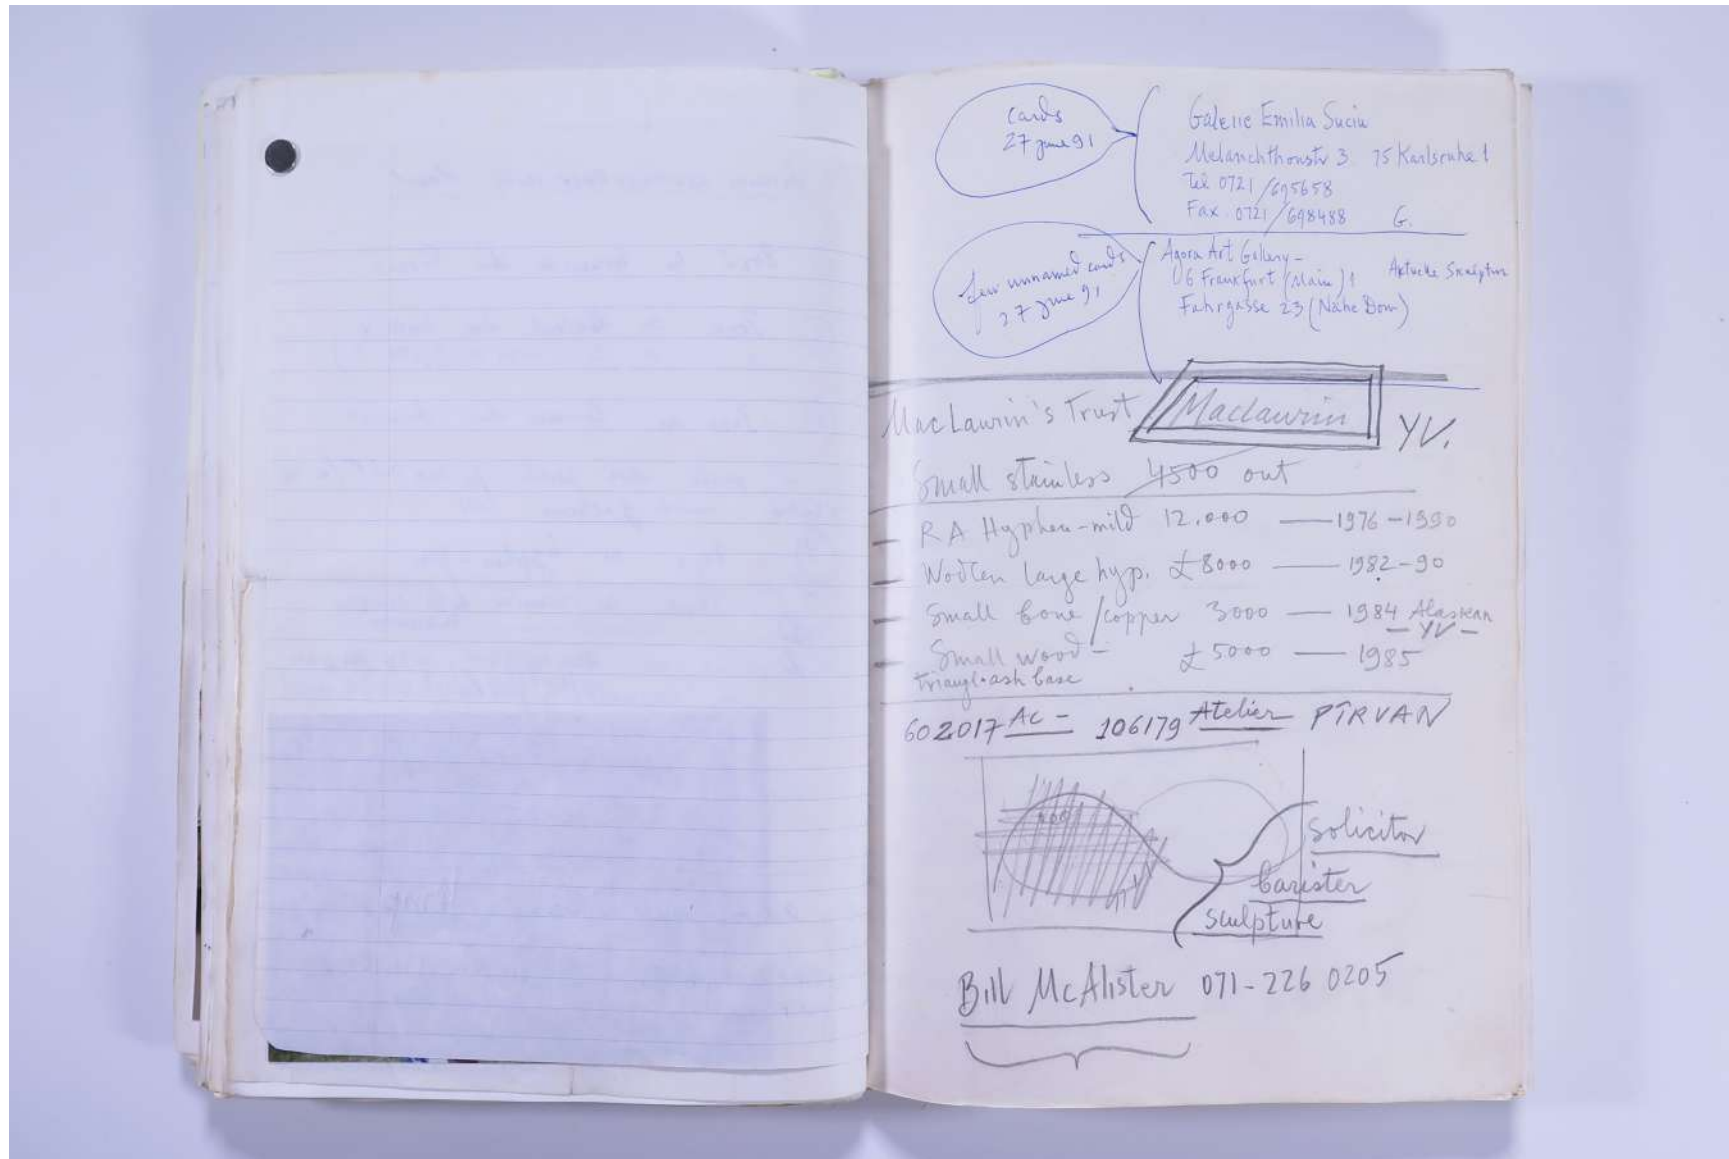 cards
27 june 91
Galerie Emilia Suciu
Melanchthonstr 3 75 Karlsruhe 1
Tel 0721/695658
Fax. 0721/698488 G.
few unnamed cards
27 june 91
Agora Art Gallery –
6 Frankfurt (Main) 1
Fahrgasse 23 (Nähe Dom)
MacLaurin's Trust Maclaurin YV.
Small stainless 4500 out
– RA Hyphen-mild 12.000 — 1976-1990
– Wooden large hyp. £8000 — 1982-90
– Small bone/copper 3000 — 1984 Alaskan
– YV –
– Small wood – £5000 — 1985
triangl. ash base
602017 AC – 106179 Atelier PÎRVAN
solicitor
barister
sculpture
Bill McAlister 071-226 0205